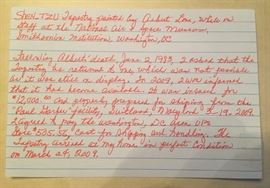 SHEN-TZU Tapestry painted by Albert Lone, while on
staff at the National Air & Space Museum,
Smithsonian Institution, Washington, DC
Following Albert's death, June 2, 1983, I asked that the
tapestry be returned to me, which was not possible
as it was still on display. In 2009, I was informed
that it had become available. It was insured for
$12,000.00 and properly prepared for shipping from the
Paul Garber facility, Suitland, Maryland 3-19-2009.
I agreed to pay the Washington, DC area UPS
Store $535.50, Cost for shipping and handling. The
Tapestry arrived at my home in perfect condition
on March 27, 2009.